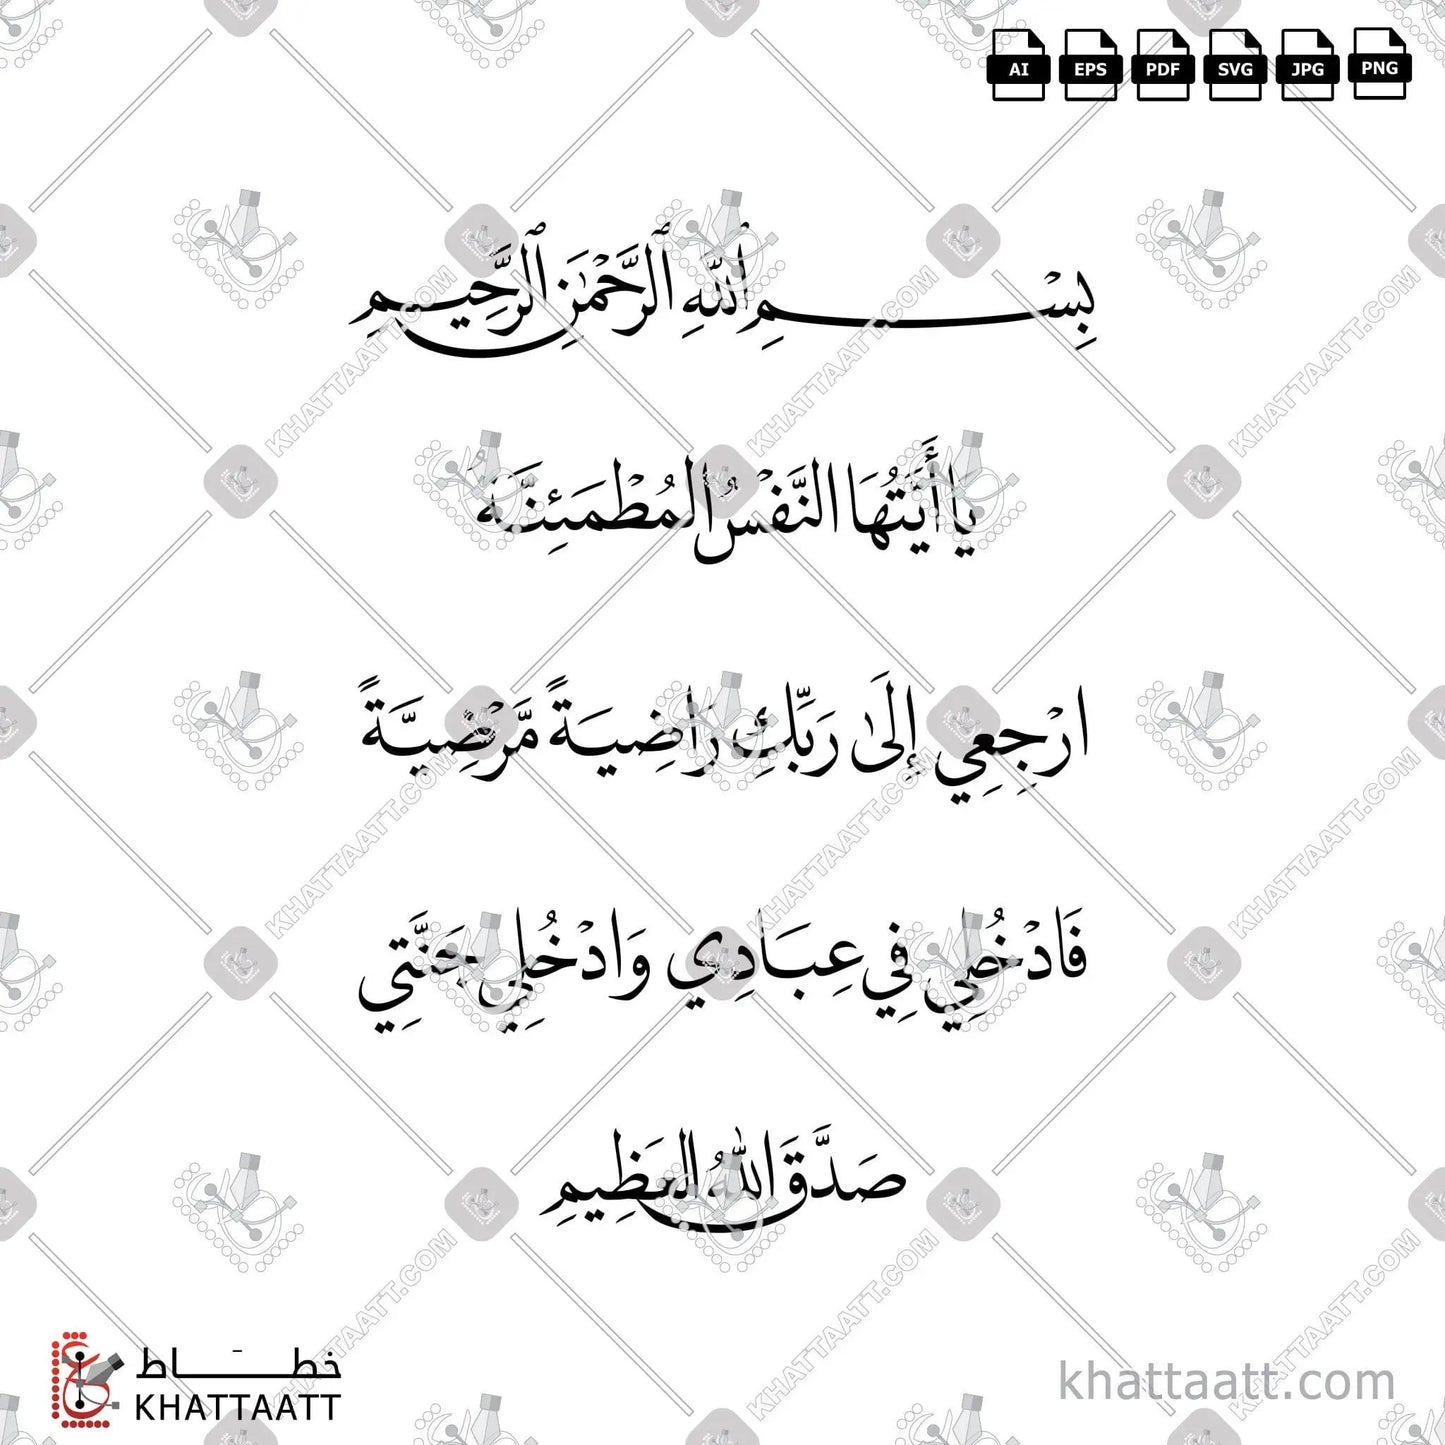 AI EPS PDF SVG JPG PNG
بِسْمِ ٱللَّهِ ٱلرَّحْمَٰنِ ٱلرَّحِيمِ
يَا أَيَّتُهَا النَّفْسُ الْمُطْمَئِنَّةُ
ارْجِعِي إِلَىٰ رَبِّكِ رَاضِيَةً مَّرْضِيَّةً
فَادْخُلِي فِي عِبَادِي وَادْخُلِي جَنَّتِي
صَدَّقَ اللهُ العَظِيمِ
خطاط
KHATTAATT
khattaatt.com
KHATTAATT.COM